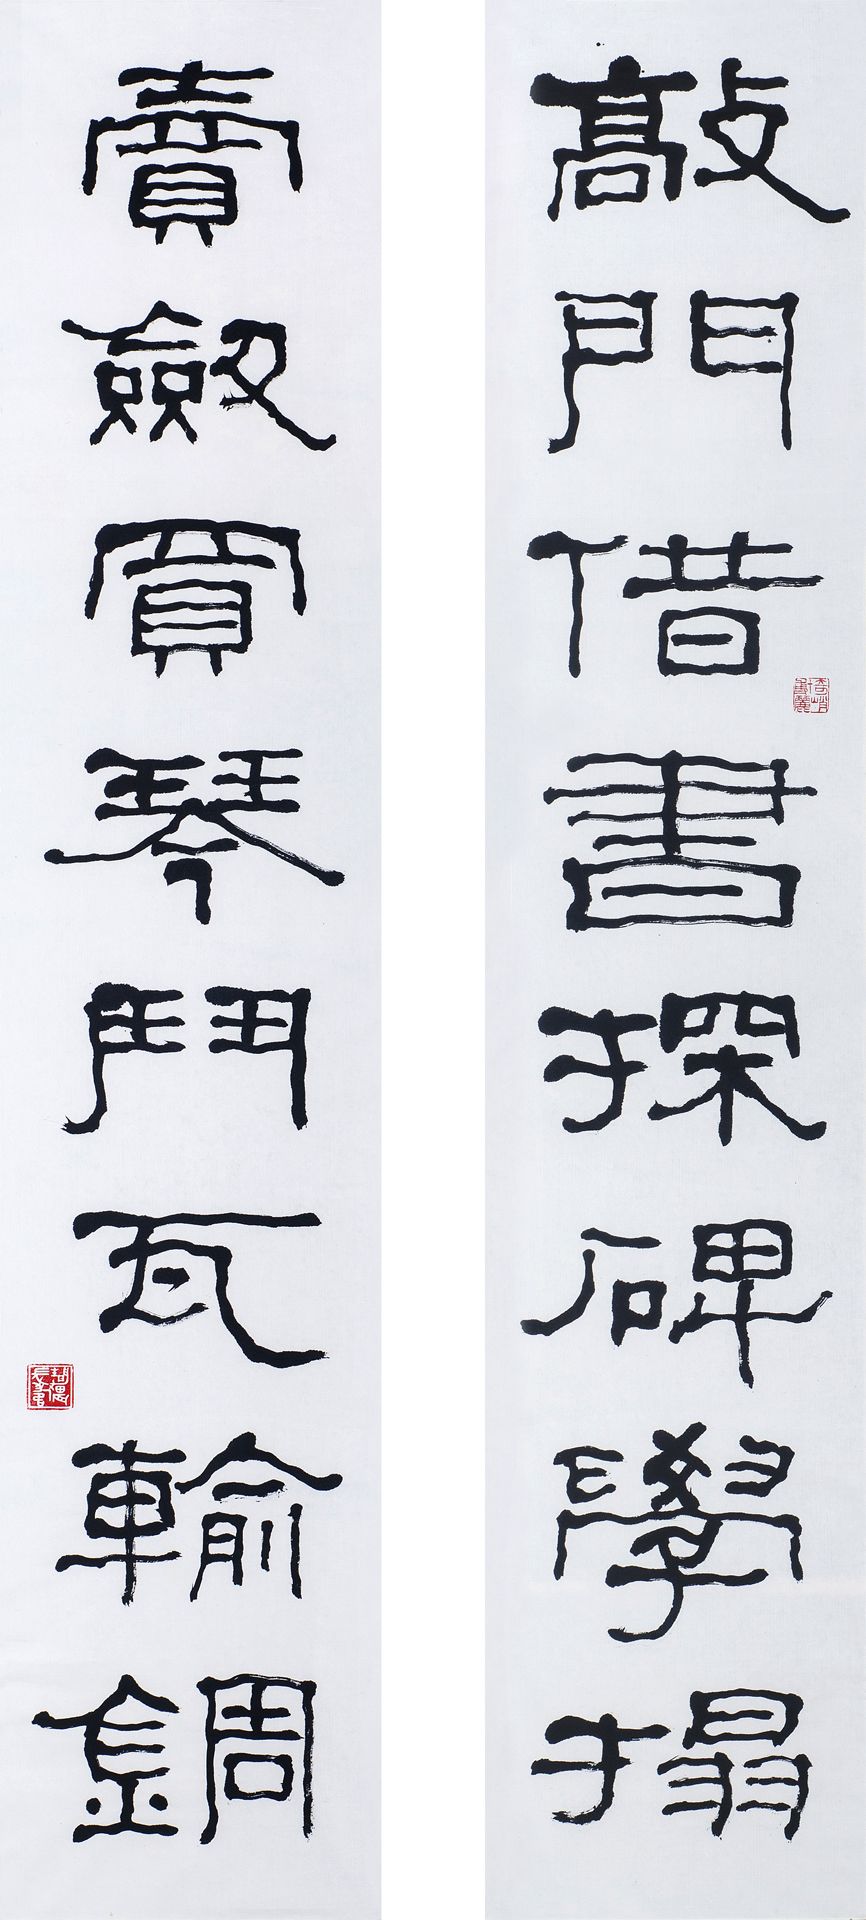 敲門借書探碑學搨
賣斂買琴鬥瓦輸鋼